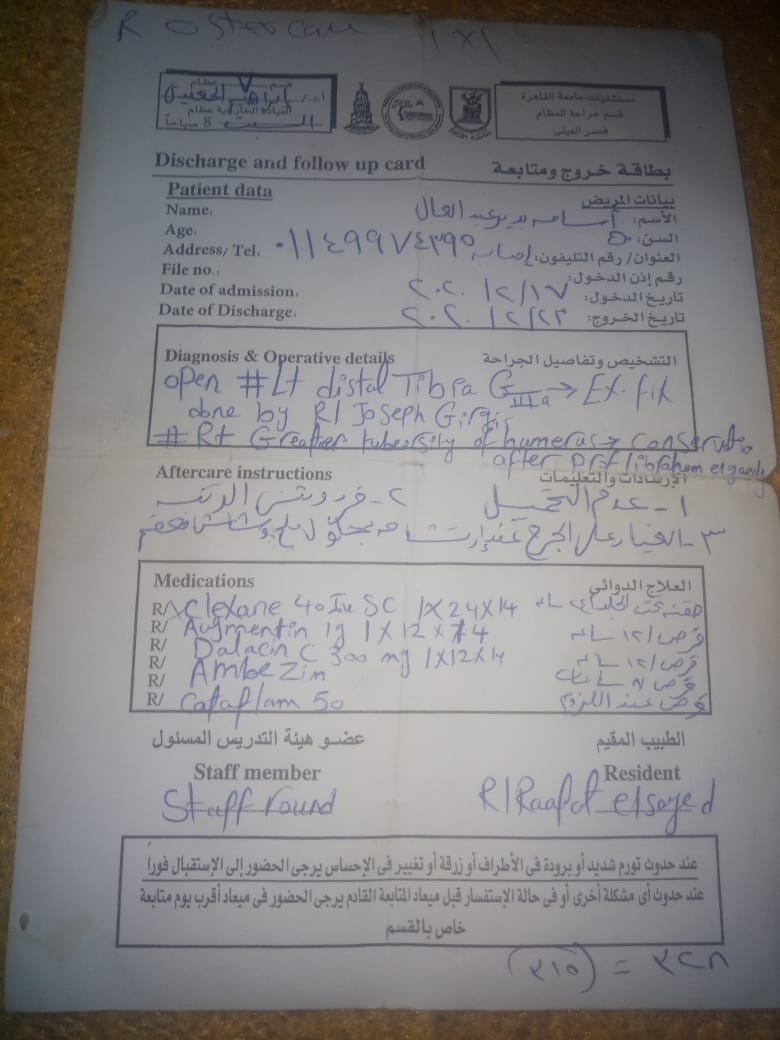 R Ostercare 1x1
قسم ٧ عظام
أ.د./ ابراهيم الجعيدى
العيادة الخارجية عظام
السبت 8 صباحاً
مستشفيات جامعة القاهرة
قسم جراحة العظام
قصر العينى
Discharge and follow up card بطاقة خروج ومتابعة
Patient data بيانات المريض
Name. الأسم: أسامه بدير عبد العال
Age. السن: ٥٠
Address/ Tel. العنوان/ رقم التليفون: ٠١١٤٩٩٧٤٣٩٥
File no. رقم إذن الدخول:
Date of admission. تاريخ الدخول: ٢٠٢٠/٢/١٧
Date of Discharge. تاريخ الخروج: ٢٠٢٠/٢/٢٣
Diagnosis & Operative details التشخيص وتفاصيل الجراحة
open # Lt distal Tibia G IIIa → Ex. fix
done by R/ Joseph Girgi
# Rt Greater tuberosity of humerus → conservative
after prof/ibrahem elgaedy
Aftercare instructions الإرشادات والتعليمات
١- عدم التحميل ٢-
٣- الغيار على الجرح عند
Medications العلاج الدوائي
R/ Clexane 40 Iu SC 1x24x14 حقنه تحت الجلد/٢٤ ساعه
R/ Augmentin 1g 1x12x14 قرص/١٢ ساعه
R/ Dalacin C 300 mg 1x12x14 قرص/١٢ ساعه
R/ Ambezim قرص/٨ ساعات
R/ Cataflam 50 قرص عند اللزوم
عضو هيئة التدريس المسئول الطبيب المقيم
Staff member Resident
Staff round R/Raafat elsayed
عند حدوث تورم شديد أو برودة فى الأطراف أو زرقة أو تغيير فى الإحساس يرجى الحضور إلى الإستقبال فوراً
عند حدوث أى مشكلة أخرى أو فى حالة الإستفسار قبل ميعاد المتابعة القادم يرجى الحضور فى ميعاد أقرب يوم متابعة
خاص بالقسم
(٣١٥) = ٣٢٨